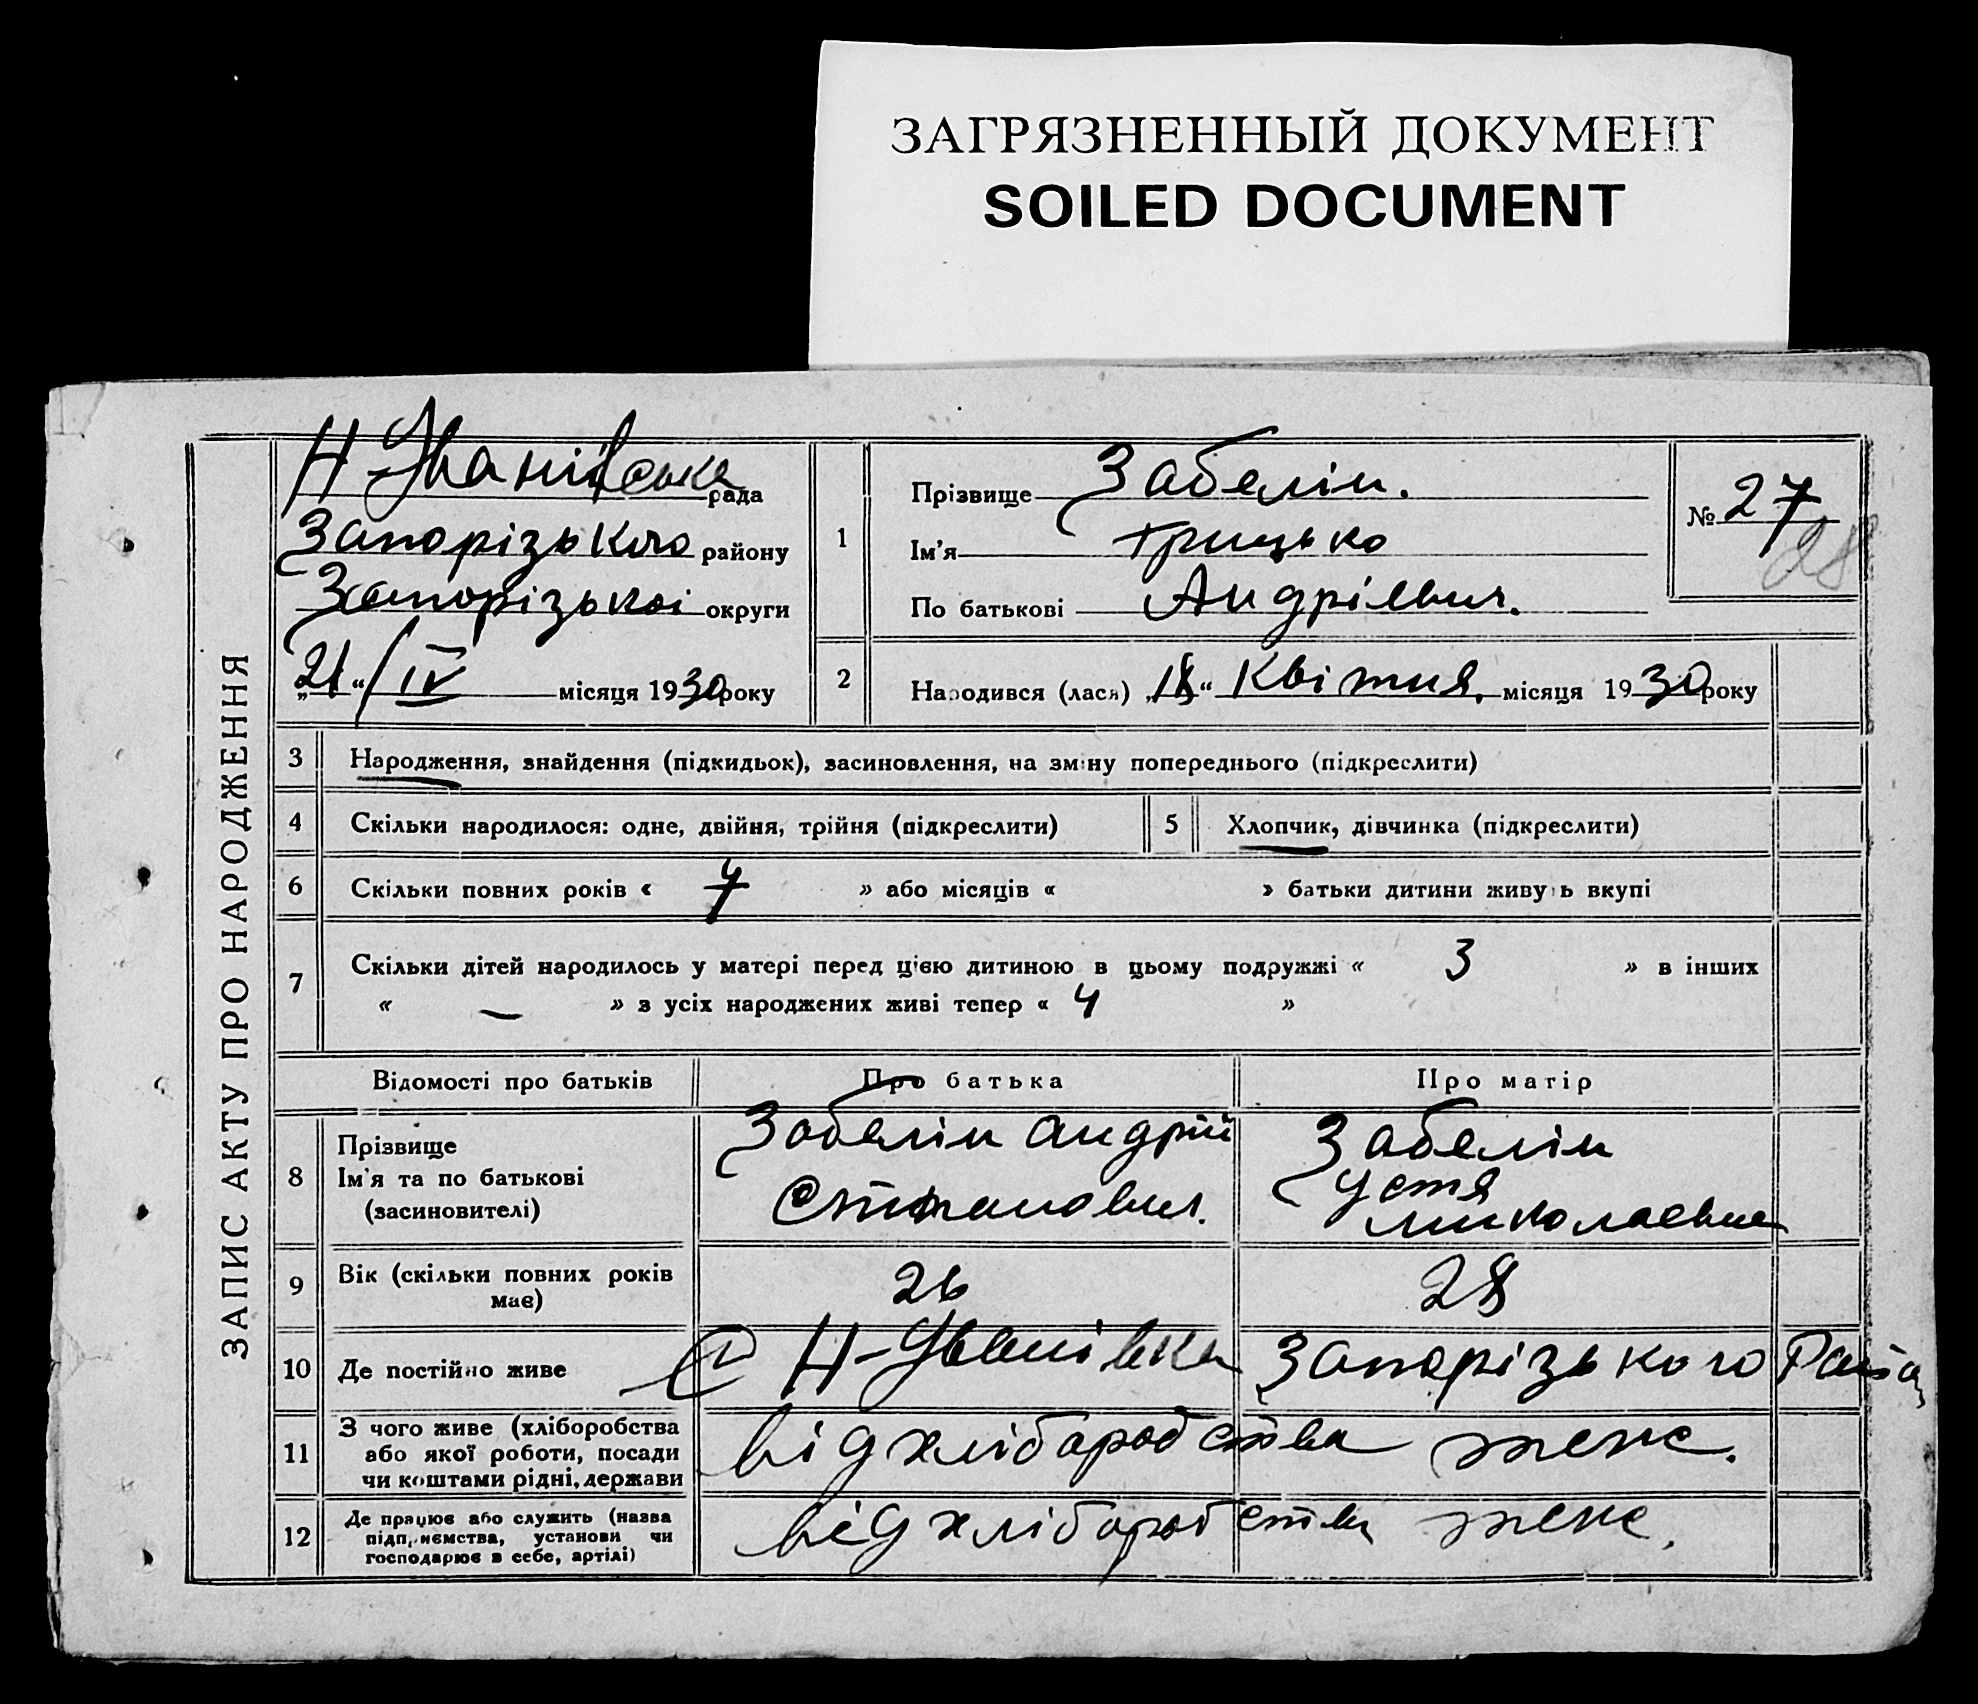 ЗАГРЯЗНЕННЫЙ ДОКУМЕНТ
SOILED DOCUMENT
ЗАПИС АКТУ ПРО НАРОДЖЕННЯ
Н-Іванівська рада
Запорізького району
Запорізької округи
„21“ / IV місяця 1930 року
1
Прізвище Забелін.
Ім'я Грицько
По батькові Андрієвич.
№ 27
28
2
Народився (лася) „18“ Квітня, місяця 1930 року
3 Народження, знайдення (підкидьок), засиновлення, на зміну попереднього (підкреслити)
4 Скільки народилося: одне, двійня, трійня (підкреслити) 5 Хлопчик, дівчинка (підкреслити)
6 Скільки повних років « 7 » або місяців « » батьки дитини живуть вкупі
7 Скільки дітей народилось у матері перед цією дитиною в цьому подружжі « 3 » в інших
« — » з усіх народжених живі тепер « 4 »
Відомості про батьків Про батька Про матір
8 Прізвище
Ім'я та по батькові
(засиновителі)
Забелін Андрій
Степанович.
Забелін
Устя
Миколаевна
9 Вік (скільки повних років
має)
26 28
10 Де постійно живе С Н-Іванівка Запорізького Району
11 З чого живе (хліборобства
або якої роботи, посади
чи коштами рідні, держави
від хліборобства жене.
12 Де працює або служить (назва
підприємства, установи чи
господарює в себе, артілі)
від хліборобства жене.